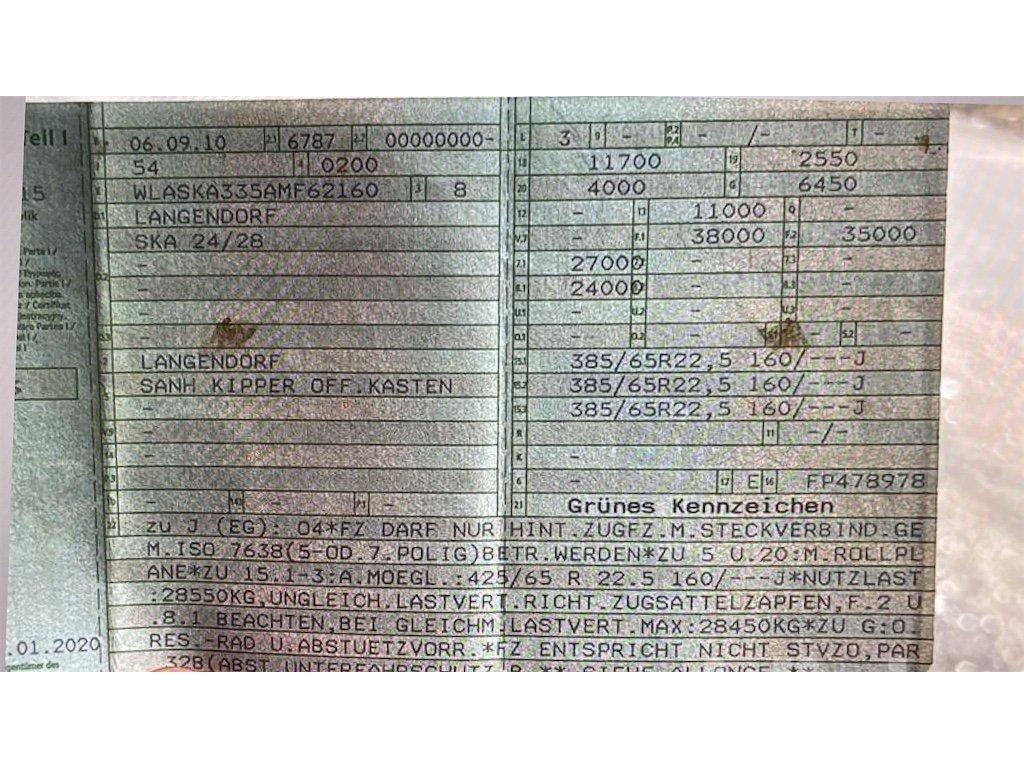 Teil I
06.09.10 2.1 6787 2.2 00000000-
L 3 9 - P.2 P.4 - /- T -
54 4 0200
18 11700 19 2550
E WLASKA335AMF62160 3 8
20 4000 G 6450
D.1 LANGENDORF
12 - 13 11000 Q -
SKA 24/28
V.7 - F.1 38000 F.2 35000
-
7.1 27000 7.3 -
D.2 -
8.1 24000 8.3 -
-
U.1 - U.2 - U.3
D.3 -
O.1 - O.2 - S.1 - S.2 -
2 LANGENDORF
15.1 385/65R22,5 160/---J
5 SANH.KIPPER OFF.KASTEN
15.2 385/65R22,5 160/---J
-
15.3 385/65R22,5 160/---J
V.9 -
R 11 -/-
14 -
K -
P.3 -
6 17 E 16 FP478978
10 - 14.1 - P.1 -
21 Grünes Kennzeichen
22 zu J (EG): 04*FZ DARF NUR HINT.ZUGFZ.M.STECKVERBIND.GE
M.ISO 7638(5-OD.7.POLIG)BETR.WERDEN*ZU 5 U.20:M.ROLLPL
ANE*ZU 15.1-3:A.MOEGL.:425/65 R 22.5 160/---J*NUTZLAST
:28550KG,UNGLEICH.LASTVERT.RICHT.ZUGSATTELZAPFEN,F.2 U
.8.1 BEACHTEN,BEI GLEICHM.LASTVERT.MAX:28450KG*ZU G:O.
RES.-RAD U.ABSTUETZVORR.*FZ ENTSPRICHT NICHT STVZO,PAR
.01.2020
32B(ABST.UNTERFAHRSCHUTZ) ** SIEHE ALLONGE **